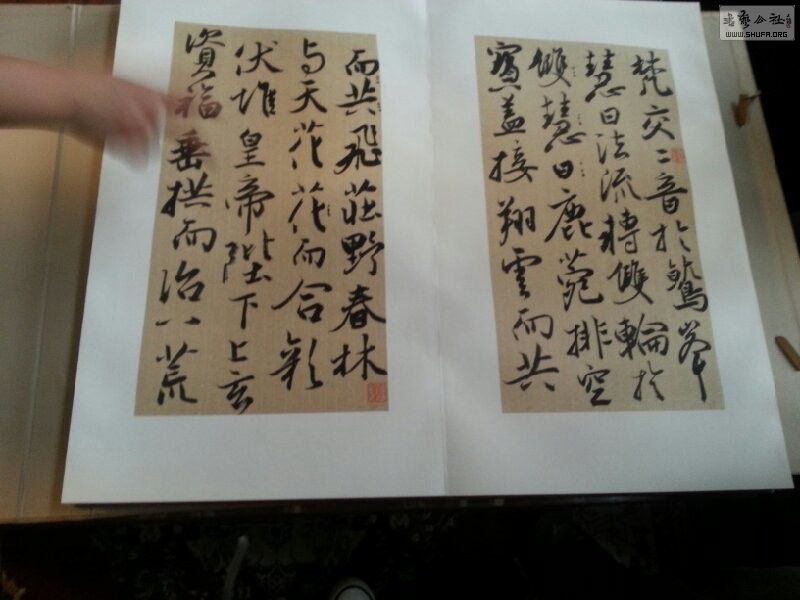 梵交二音於鷲峯
慧日法流轉雙輪於
雙慧日鹿菀排空
寶蓋接翔雲而共
而共飛莊野春林
与天花花而合彩
伏惟皇帝陛下上玄
資福垂拱而治八荒
書藝公社
WWW.SHUFA.ORG